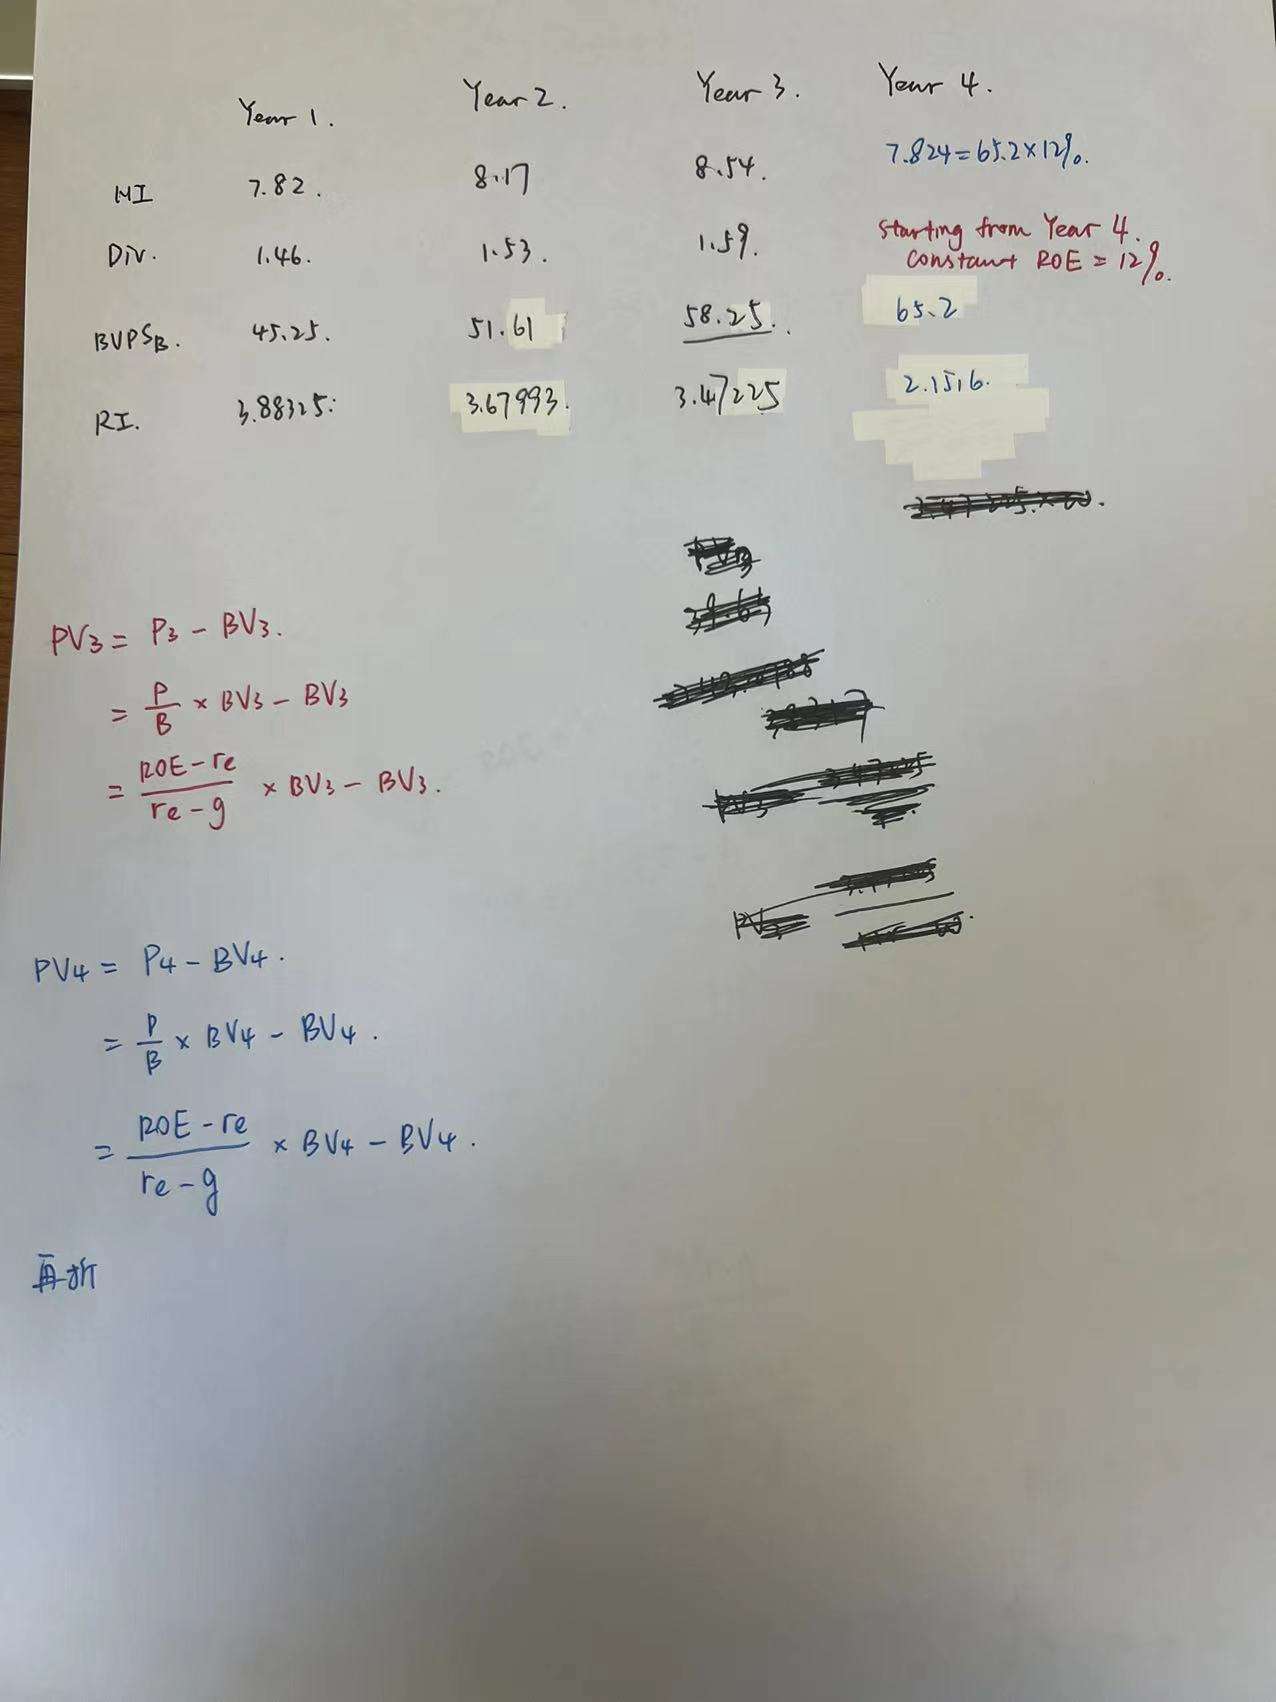 Year 1. Year 2. Year 3. Year 4.
NI 7.82. 8.17 8.54. 7.824=65.2×12%.
Div. 1.46. 1.53. 1.59. Starting from Year 4.
constant ROE = 12%.
BVPSB. 45.25. 51.61 58.25.. 65.2
RI. 3.88325. 3.67993. 3.47225 2.1516.
PV3 = P3 - BV3.
= P/B × BV3 - BV3
= ROE-re/re-g × BV3 - BV3.
PV4 = P4 - BV4.
= P/B × BV4 - BV4.
= ROE-re/re-g × BV4 - BV4.
再折